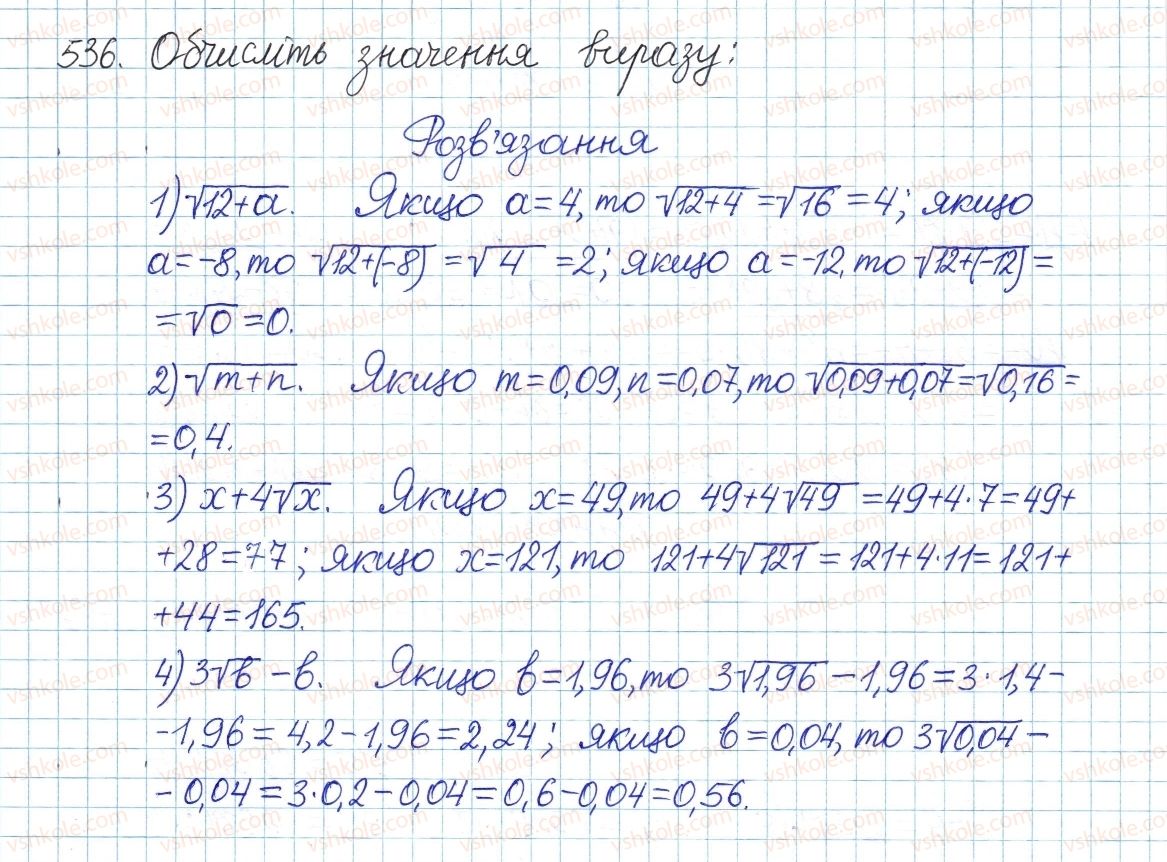 536. Обчисліть значення виразу:
Розв'язання
1) √12+a. Якщо a=4, то √12+4=√16=4; якщо
a=-8, то √12+(-8)=√4=2; якщо a=-12, то √12+(-12)=
=√0=0.
2) √m+n. Якщо m=0,09, n=0,07, то √0,09+0,07=√0,16=
=0,4.
3) x+4√x. Якщо x=49, то 49+4√49=49+4·7=49+
+28=77; якщо x=121, то 121+4√121=121+4·11=121+
+44=165.
4) 3√b-b. Якщо b=1,96, то 3√1,96-1,96=3·1,4-
-1,96=4,2-1,96=2,24; якщо b=0,04, то 3√0,04-
-0,04=3·0,2-0,04=0,6-0,04=0,56.